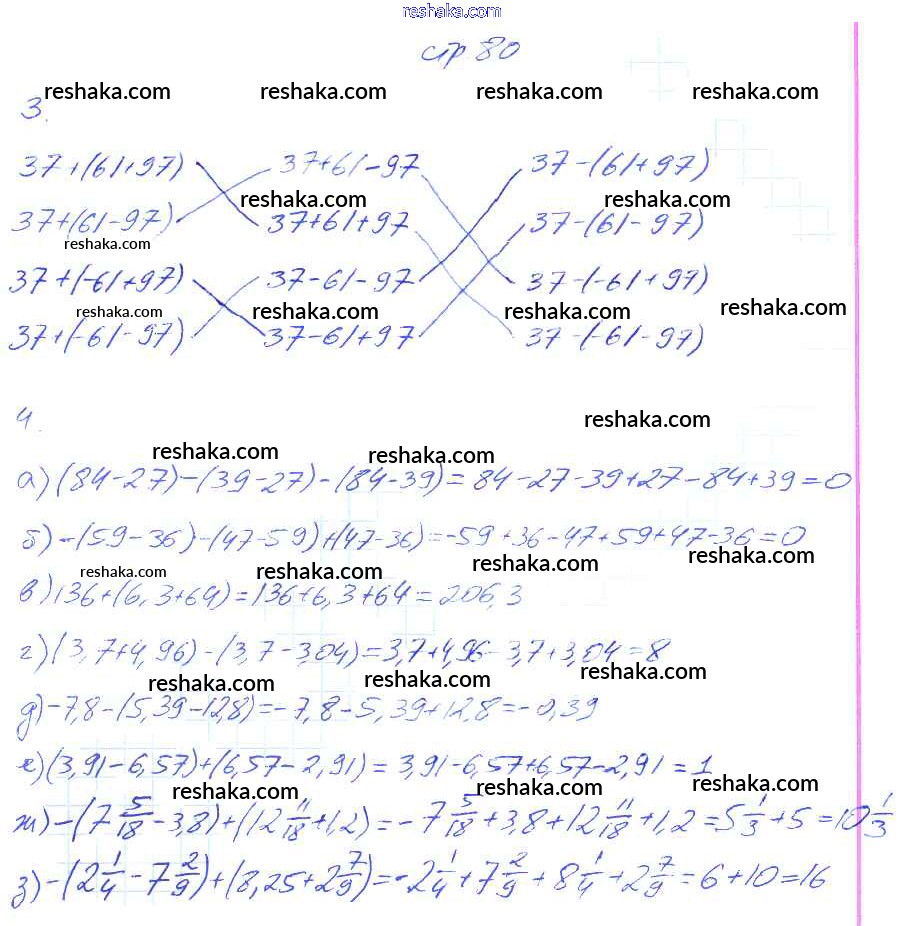 reshaka.com
стр 80
reshaka.com reshaka.com reshaka.com reshaka.com
3.
37+(61+97) 37+61-97 37-(61+97)
reshaka.com reshaka.com
37+(61-97) 37+61+97 37-(61-97)
reshaka.com
37+(-61+97) 37-61-97 37-(-61+97)
reshaka.com reshaka.com reshaka.com reshaka.com
37+(-61-97) 37-61+97 37-(-61-97)
4.
reshaka.com
reshaka.com reshaka.com
а) (84-27)-(39-27)-(84-39)=84-27-39+27-84+39=0
б) -(59-36)-(47-59)+(47-36)=-59+36-47+59+47-36=0
reshaka.com reshaka.com reshaka.com reshaka.com
в) 136+(6,3+64)=136+6,3+64=206,3
г) (3,7+4,96)-(3,7-3,04)=3,7+4,96-3,7+3,04=8
reshaka.com reshaka.com reshaka.com
д) -7,8-(5,39-12,8)=-7,8-5,39+12,8=-0,39
е) (3,91-6,57)+(6,57-2,91)=3,91-6,57+6,57-2,91=1
reshaka.com reshaka.com reshaka.com
ж) -(7 5/18-3,8)+(12 11/18+1,2)=-7 5/18+3,8+12 11/18+1,2=5 1/3+5=10 1/3
з) -(2 1/4-7 2/9)+(8,25+2 7/9)=-2 1/4+7 2/9+8 1/4+2 7/9=6+10=16